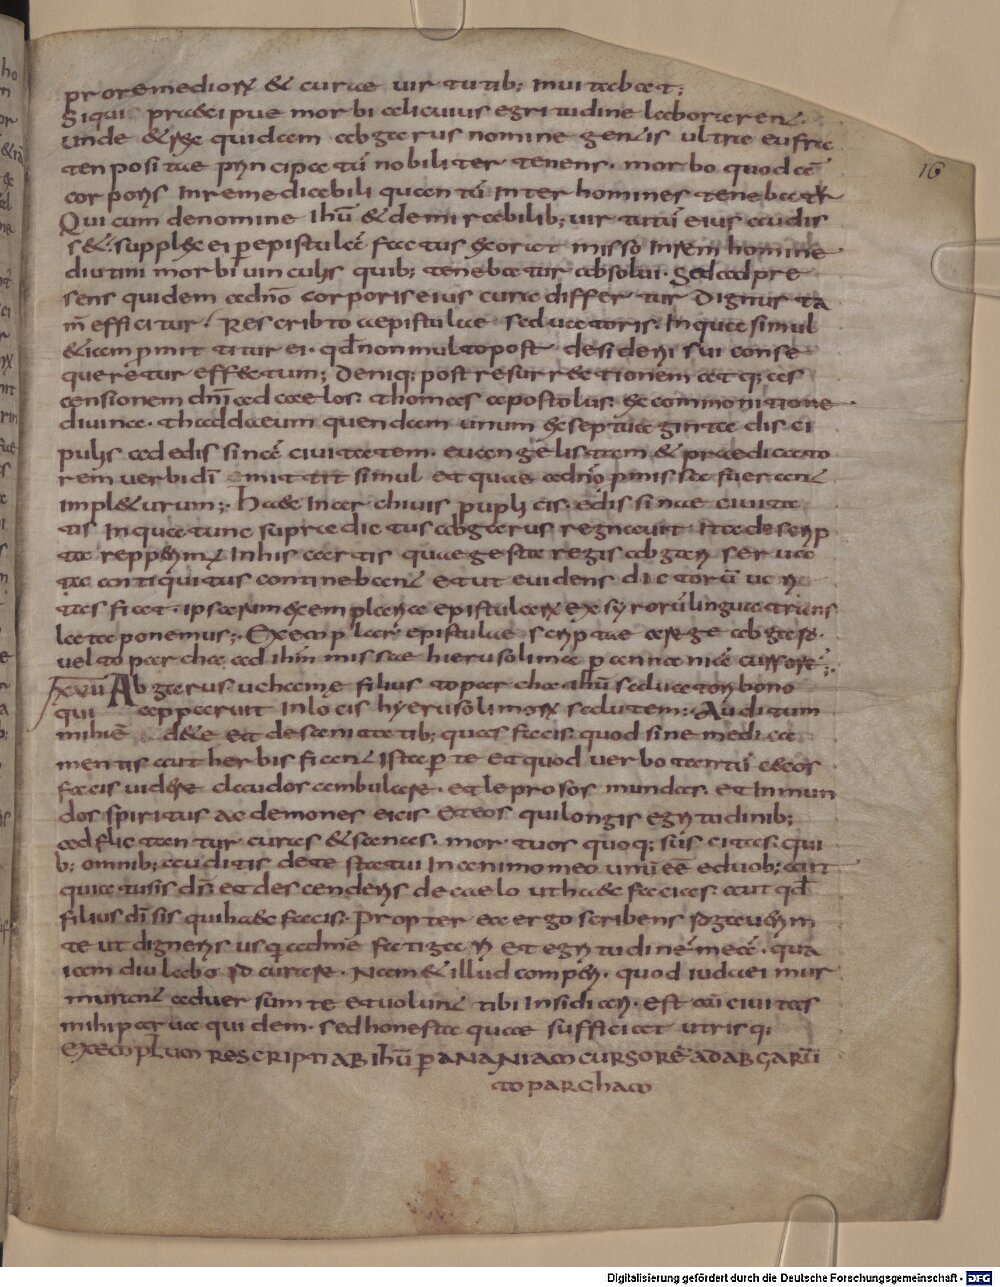 pro remediorꝝ & curae uirtutib; inuitabat;
Siqui praecipue morbi alicuius egritudine laborarent
unde & rex quidam abgarus nomine gentis ultra eufra
ten positae principatū nobiliter tenens. morbo quodā
corporis inremediabili quantū inter homines tenebatur
Qui cum de nomine ihū & de mirabilib; uirtutū eius audis
s&. supplex ei p epistulā factus exorat misso
diutini morbi uinculis quib; tenebatur absolui. Sed ad pre
sens quidem adnō corporis eius cura differtur Dignus ta
m̄ efficitur. Rescribto aepistulae seduatoris. In qua simul
&iam pmittitur ei. qđ non multo post desiderii sui conse
queretur eff&tum; Deniq; post resurr&tionem atq; as
censionem dn̄i ad caelos. thomas apostolus. ex commonitione
diuina. thaddaeum quendam unum ex septuaginta disci
pulis ad edissinā ciuitatem. euangelistam & praedicato
rem uerbi dī emittit simul et quae adnō pmissa fuerant
impl&urum; Haec in archiuis puplicis edissinae ciuita
tis in qua tunc supradictus abgarus regnauit ita descrip
ta repperimꝰ In his cartis quae gesta regis abgari serua
ta antiquitus continebant et ut euidens dictorū ueri
tas fiat. ipsarum exemplaria epistularꝝ ex syrorū lingua trans
lata ponemus; Exemplar epistulae scriptae a rege abgaro.
uel toparcha ad ihm missae hierusolima p annaniā cursorē;
xuii Abgarus uchame filius toparcha ihū seduatori bono
qui apparuit in locis hyerusolimorꝝ salutem; Auditum
mihi ē de te et de sanitatib; quas facis. quod sine medica
mentis aut herbis fiant ista p te et quod uerbo tantū caecos
facis uidere claudos ambulare. et leprosos mundas. et inmun
dos spiritus ac demones eicis et eos qui longis egritudinib;
adflictantur curas & sanas. mortuos quoq; suscitas. qui
b; omnib; auditis de te statui in animo meo unū eē e duob; aut
quia tu sis dn̄s et descenderis de caelo ut haec facias. aut qđ
filius dī sis qui haec facis; Propter ea ergo scribens rogauerim
te ut digneris usq; ad me fatigari et egritudinē meā. qua
iam diu laboro curare. Nam & illud comperi. quod iudaei mur
murant aduersum te et uolunt tibi insidiari. est aū ciuitas
mihi parua quidem. sed honesta quae sufficiat utrisq;
Exemplum rescripti ab ihū p ananiam cursorē ad abgarū
toparcham
16
Digitalisierung gefördert durch die Deutsche Forschungsgemeinschaft - DFG